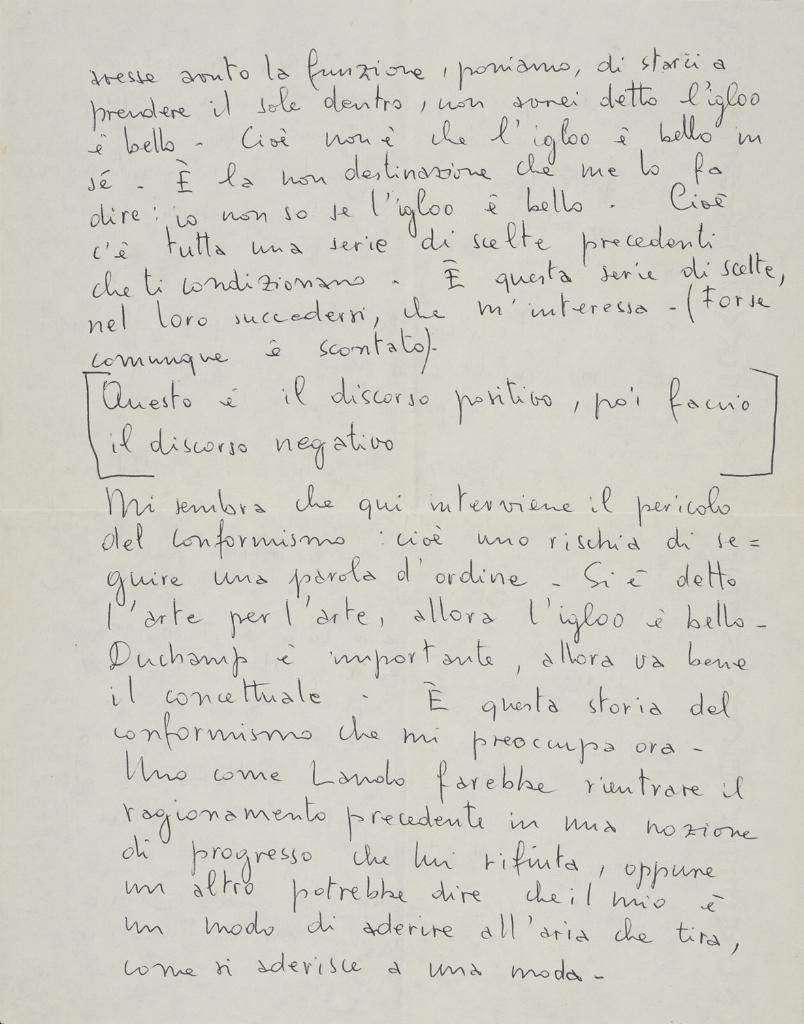 avesse avuto la funzione, poniamo, di starci a
prendere il sole dentro, non avrei detto l'igloo
è bello - Cioè non è che l'igloo è bello in
sé - È la non destinazione che me lo fa
dire: io non so se l'igloo è bello - Cioè
c'è tutta una serie di scelte precedenti
che ti condizionano - È questa serie di scelte,
nel loro succedersi, che m'interessa - (Forse
comunque è scontato)-
[Questo è il discorso positivo, poi faccio
il discorso negativo]
Mi sembra che qui interviene il pericolo
del conformismo: cioè uno rischia di se=
guire una parola d'ordine - Si è detto
l'arte per l'arte, allora l'igloo è bello -
Duchamp è importante, allora va bene
il concettuale - È questa storia del
conformismo che mi preoccupa ora -
Uno come Lando farebbe rientrare il
ragionamento precedente in una nozione
di progresso che lui rifiuta, oppure
un altro potrebbe dire che il mio è
un modo di aderire all'aria che tira,
come si aderisce a una moda -